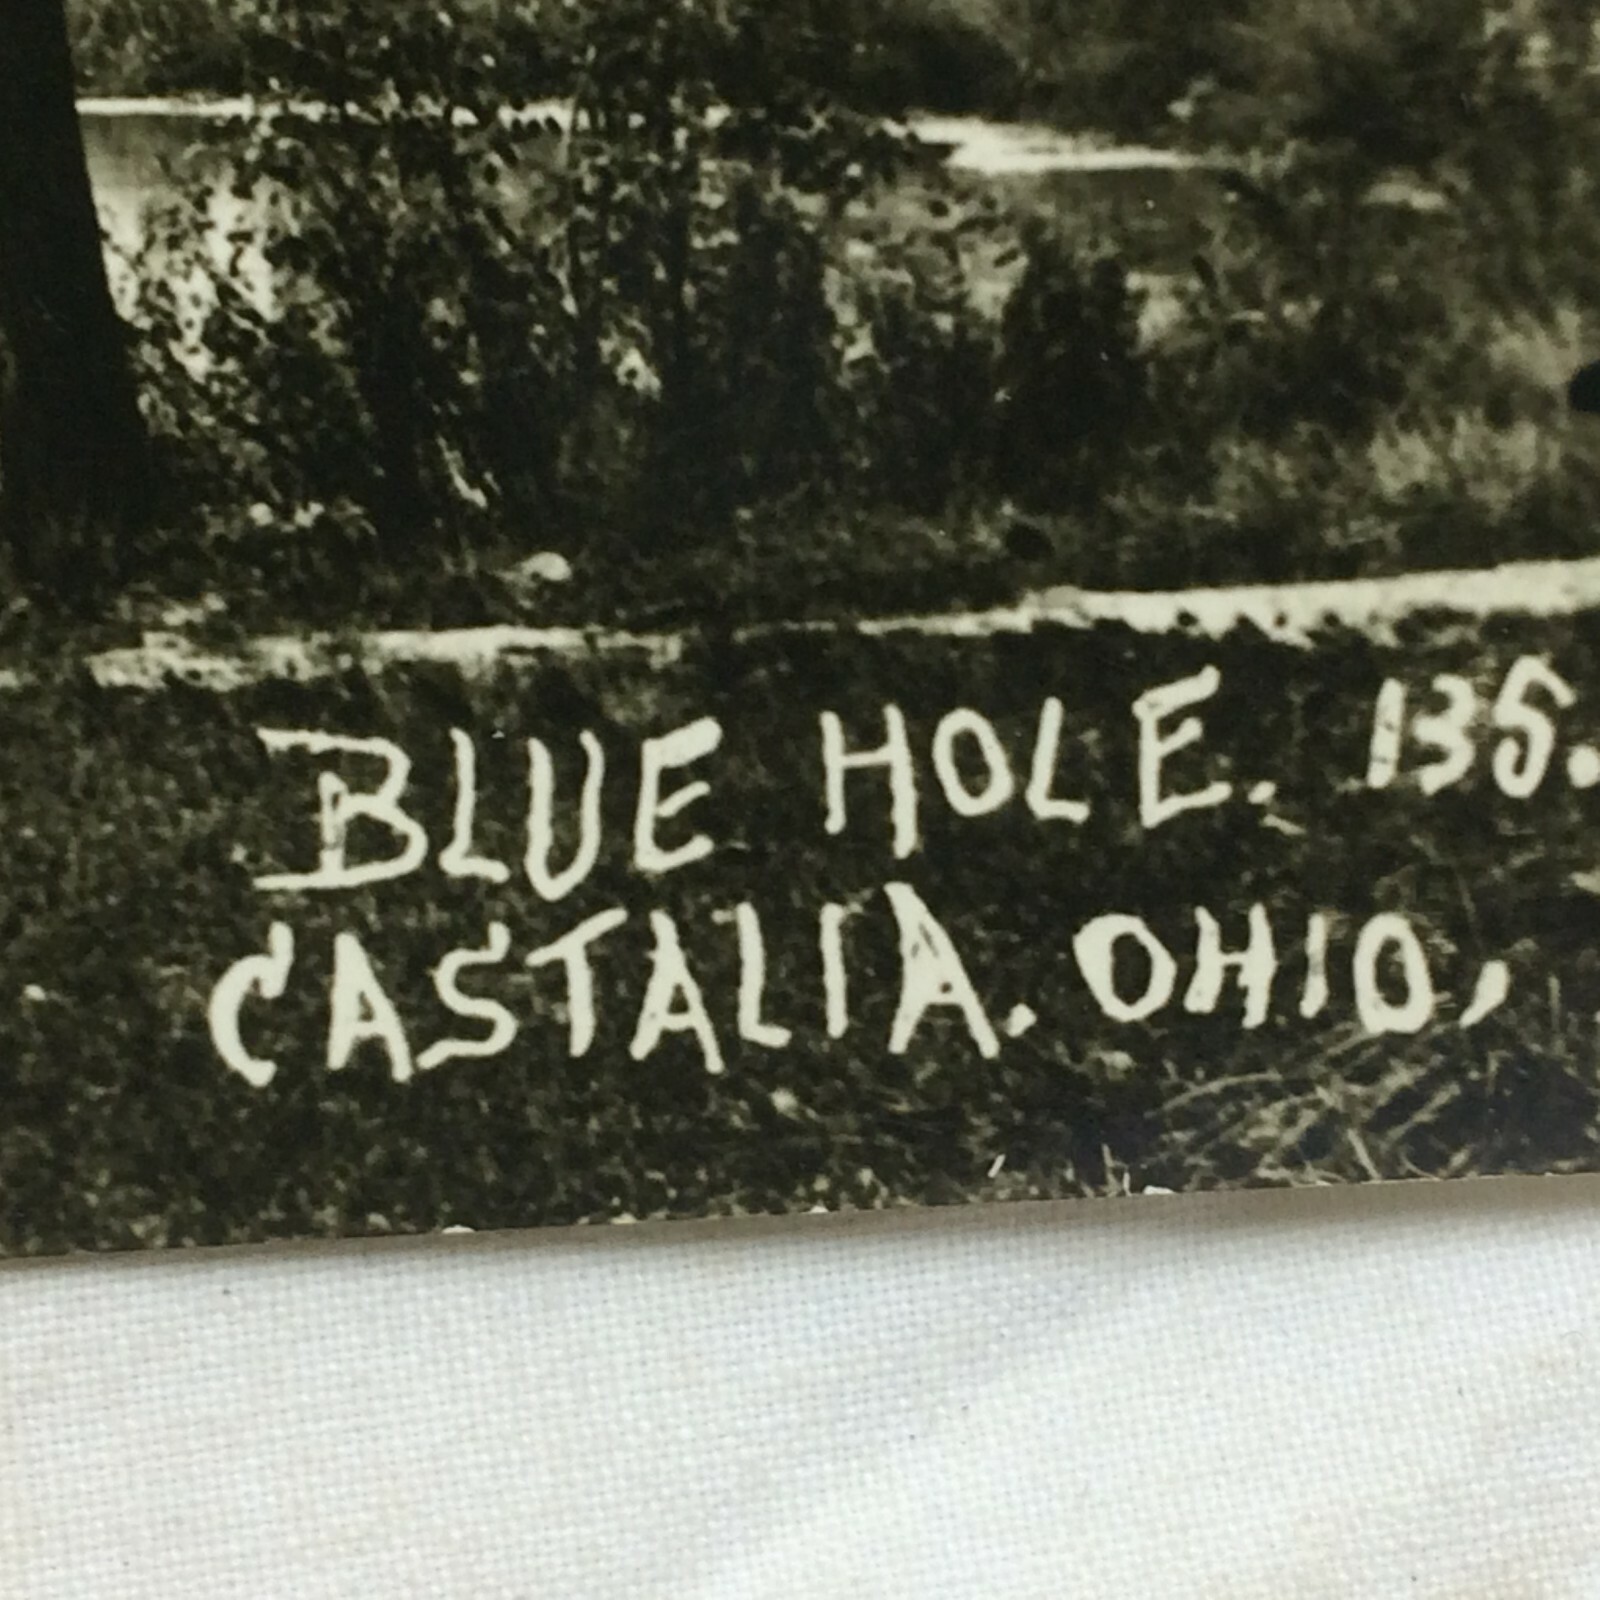 BLUE HOLE. 135.
CASTALIA. OHIO,